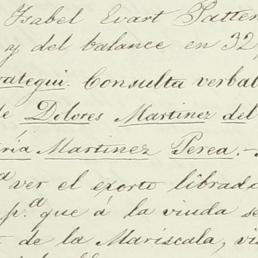 Isabel Evart Patten
y del balance en 32
rategui. Consulta verbal
de Dolores Martinez del
ría Martinez Perea.-
ª ver el exorto librado
p.ª que á la viuda se
de la Mariscala, vi